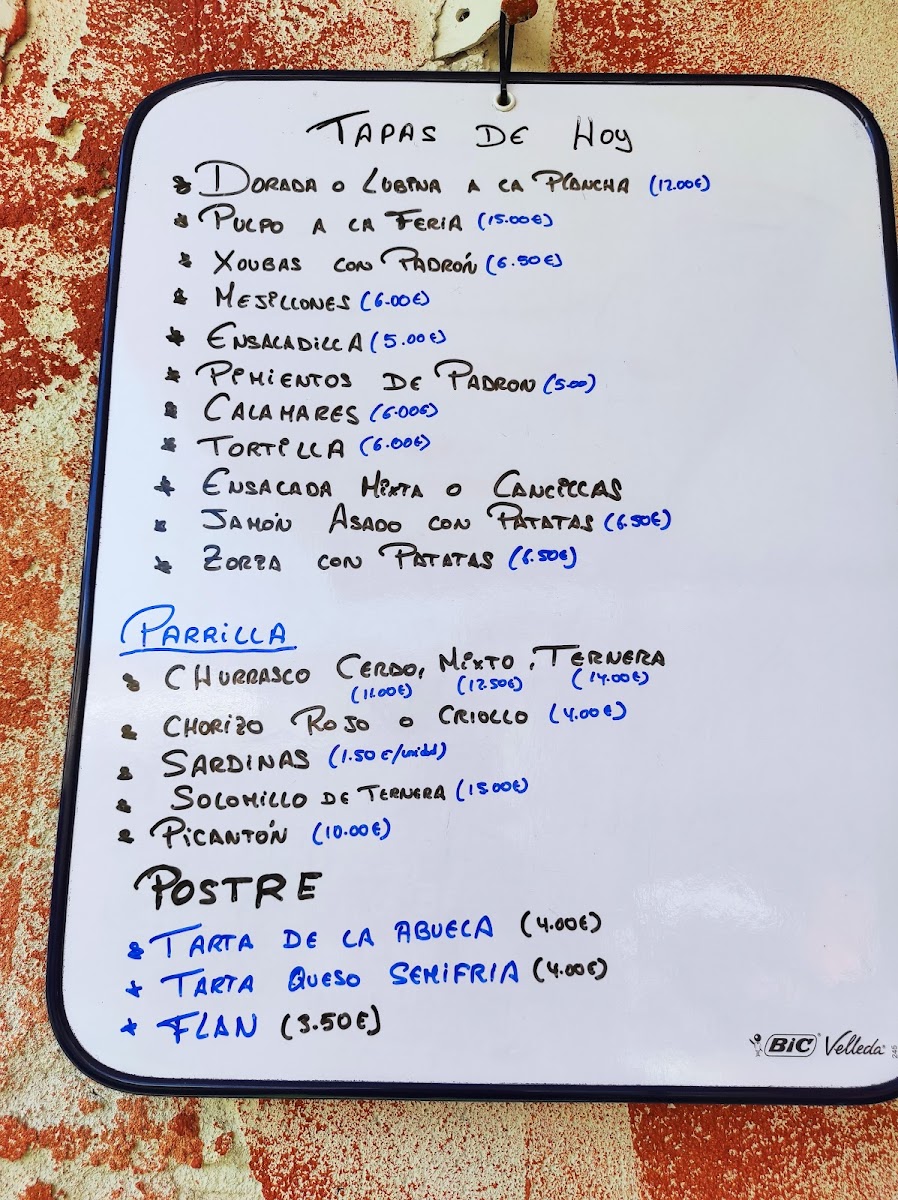 TAPAS DE HOY
* DORADA O LUBINA A LA PLANCHA (12.00€)
* PULPO A LA FERIA (15.00€)
* XOUBAS CON PADRÓN (6.50€)
* MEJILLONES (6.00€)
* ENSALADILLA (5.00€)
* PIMIENTOS DE PADRON (5.00)
* CALAMARES (6.00€)
* TORTILLA (6.00€)
* ENSALADA MIXTA O CANCILLAS
* JAMÓN ASADO CON PATATAS (6.50€)
* ZORZA CON PATATAS (6.50€)
PARRILLA
* CHURRASCO CERDO, MIXTO, TERNERA
(11.00€) (12.50€) (14.00€)
* CHORIZO ROJO O CRIOLLO (4.00€)
* SARDINAS (1.50€/unidd)
* SOLOMILLO DE TERNERA (15 00€)
* PICANTÓN (10.00€)
POSTRE
* TARTA DE LA ABUELA (4.00€)
* TARTA QUESO SEMIFRIA (4.00€)
* FLAN (3.50€)
BIC Velleda 245